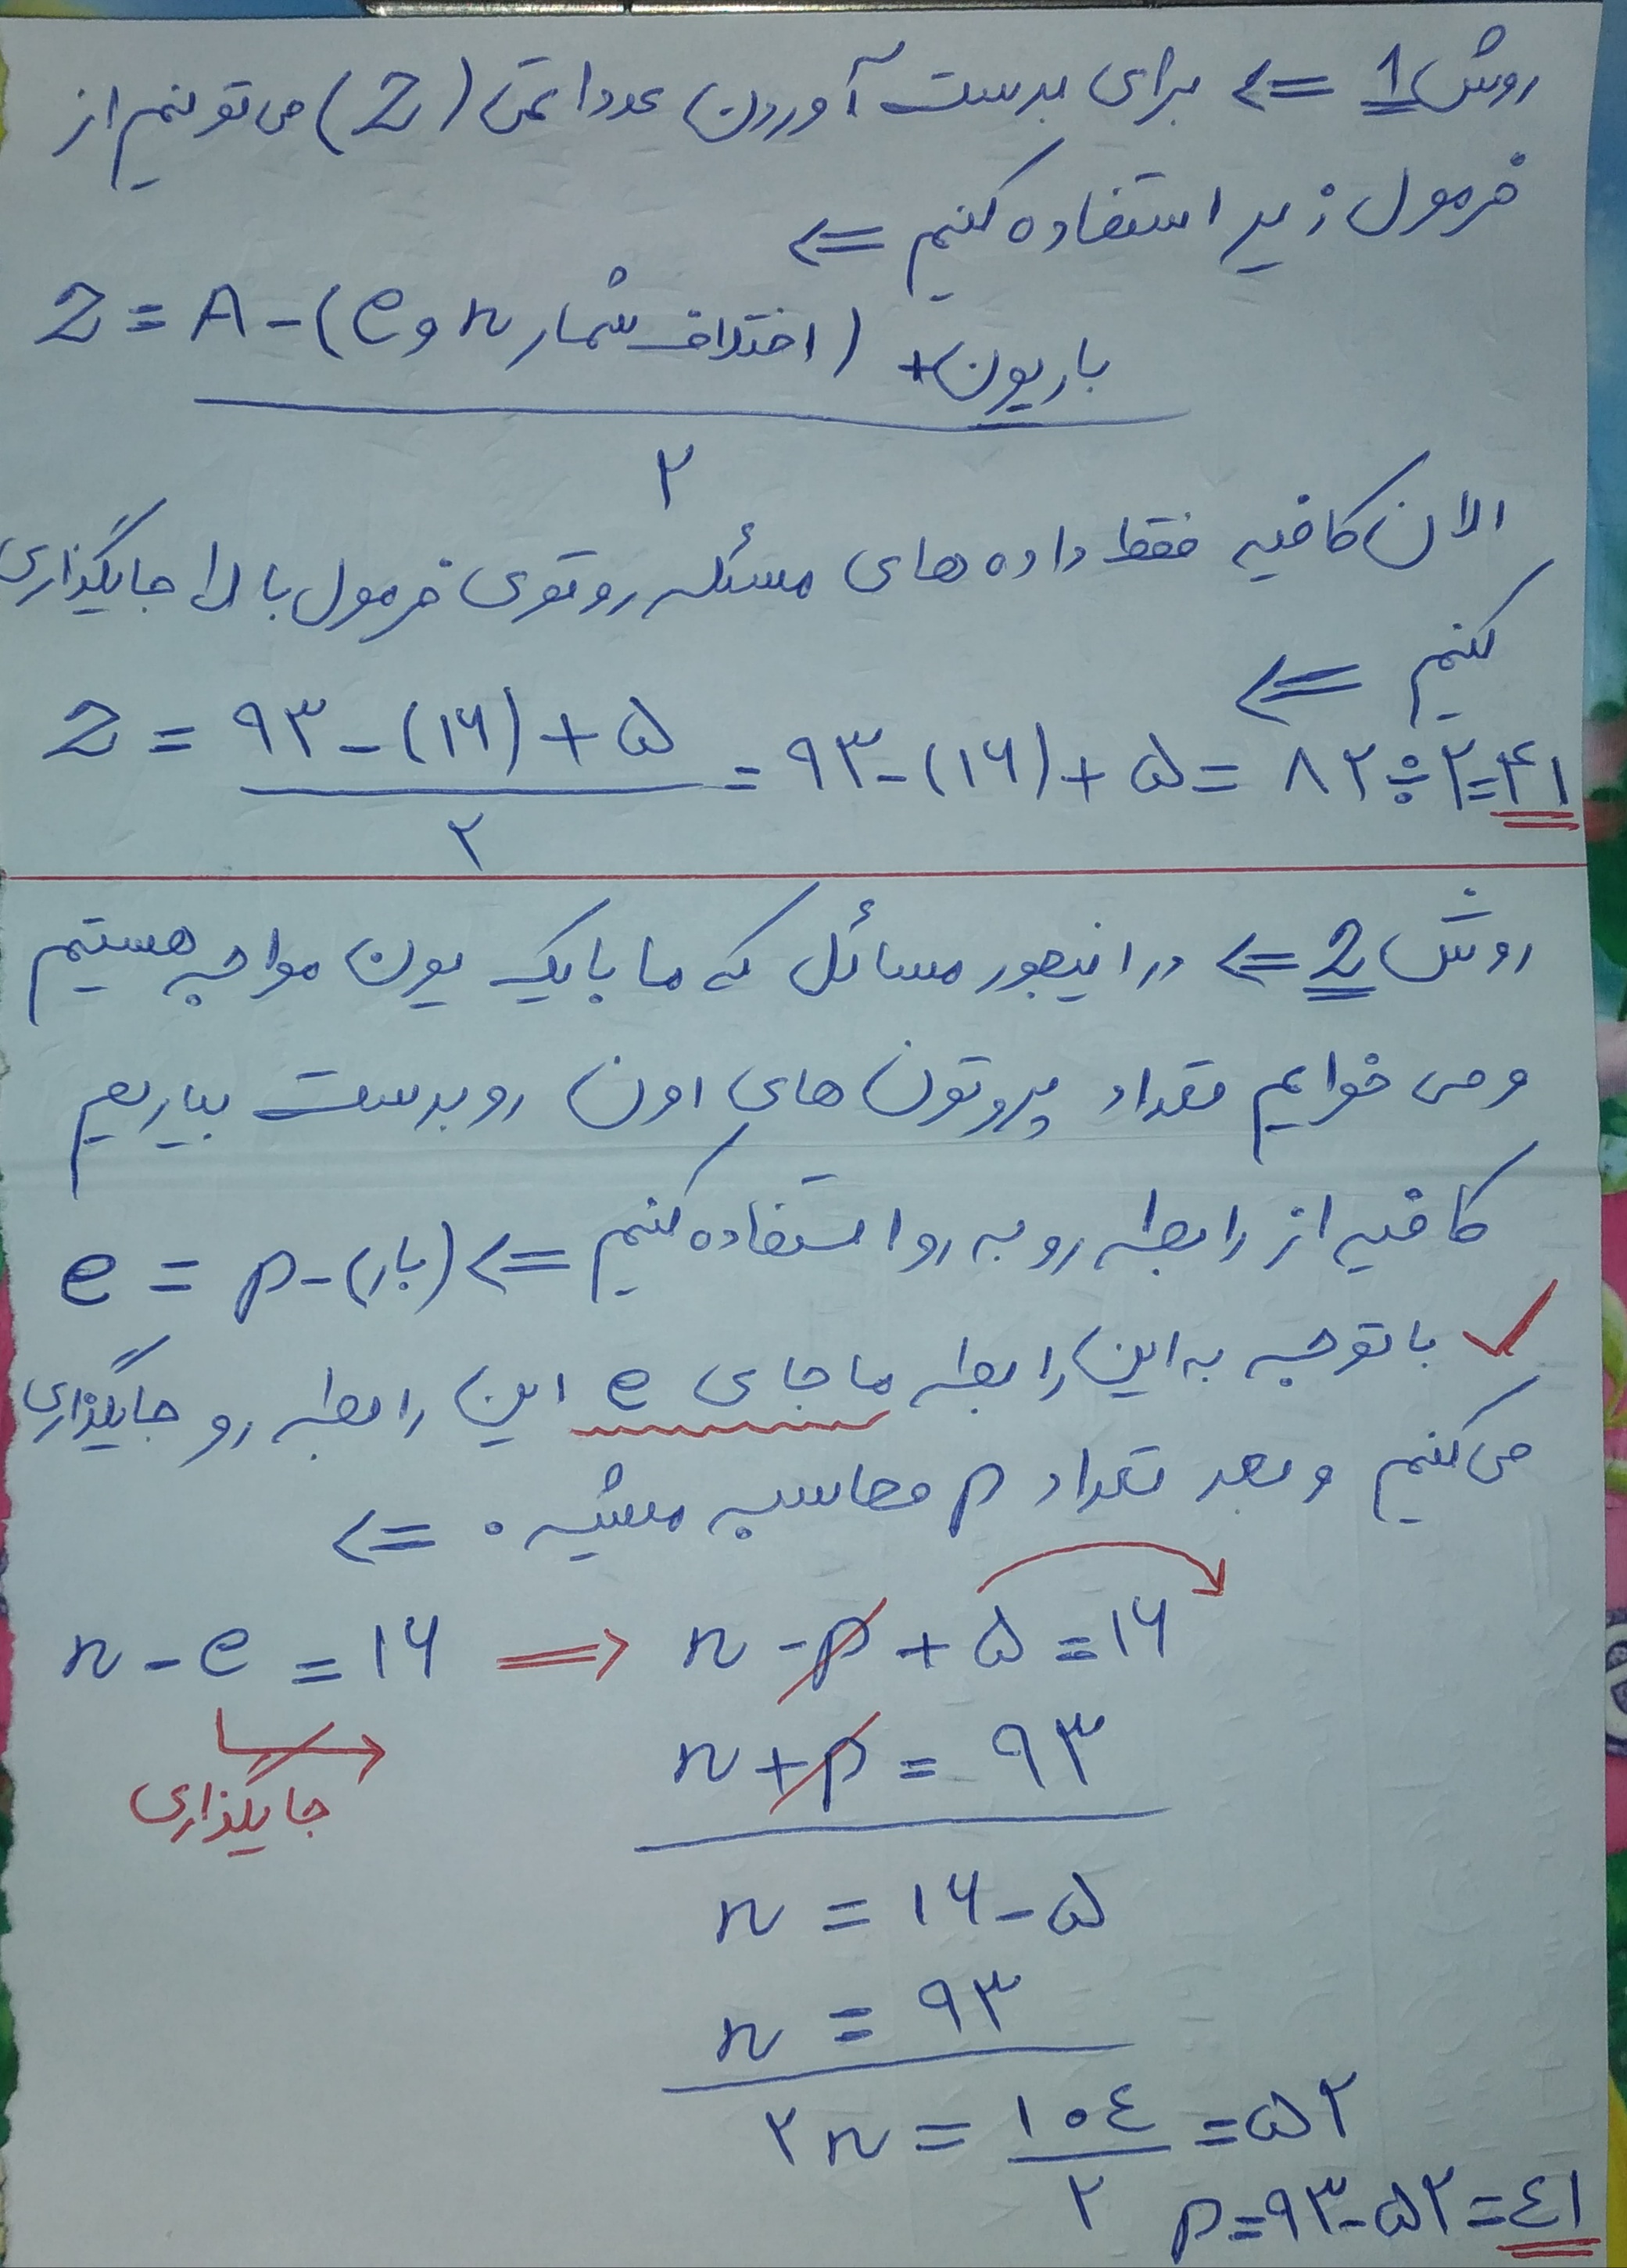 روش 1 <= برای بدست آوردن عدد اتمی (Z) می تونیم از
فرمول زیر استفاده کنیم <=
Z = A - (e و n اختلاف شمار) + بار یون
۲
الان کافیه فقط داده های مسئله رو توی فرمول بالا جایگذاری
کنیم <=
Z = ۹۳ - (۱۶) + ۵ = ۹۳ - (۱۶) + ۵ = ۸۲ ÷ ۲ = ۴۱
۲
روش 2 <= در اینجور مسائل که ما با یک یون مواجه هستیم
و می خوایم تعداد پروتون های اون رو بدست بیاریم
کافیه از رابطه رو به رو استفاده کنیم <= e = p - (بار)
✓ با توجه به این رابطه ما جای e این رابطه رو جایگذاری
می کنیم و بعد تعداد p محاسبه میشه . <=
n - e = ۱۶ => n - p + ۵ = ۱۶
جایگذاری
n + p = ۹۳
n = ۱۶ - ۵
n = ۹۳
۲n = ۱۰٤ = ۵۲
۲
p = ۹۳ - ۵۲ = ٤۱